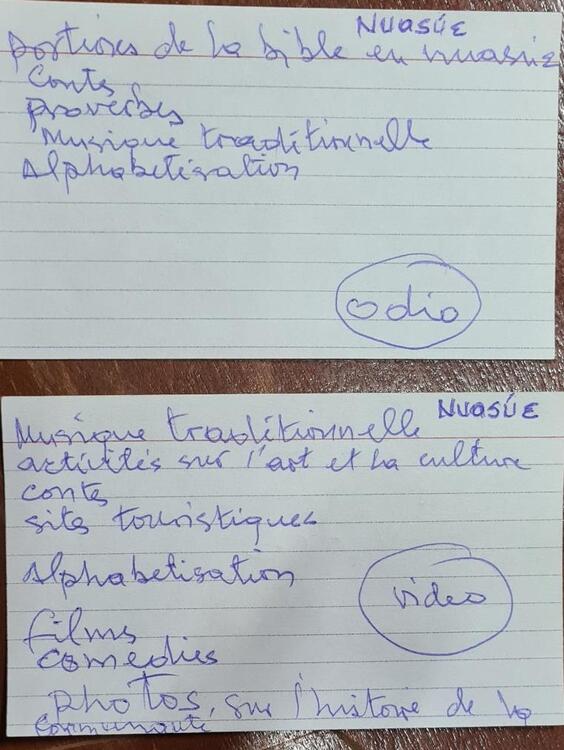 NUASÚE
portions de la bible en nuasúe
Contes
proverbes
Musique traditionnelle
Alphabetisation
odio
NUASÚE
Musique traditionnelle
activités sur l'art et la culture
contes
sites touristiques
Alphabetisation
video
films
comedies
photos, sur l'histoire de la
communauté